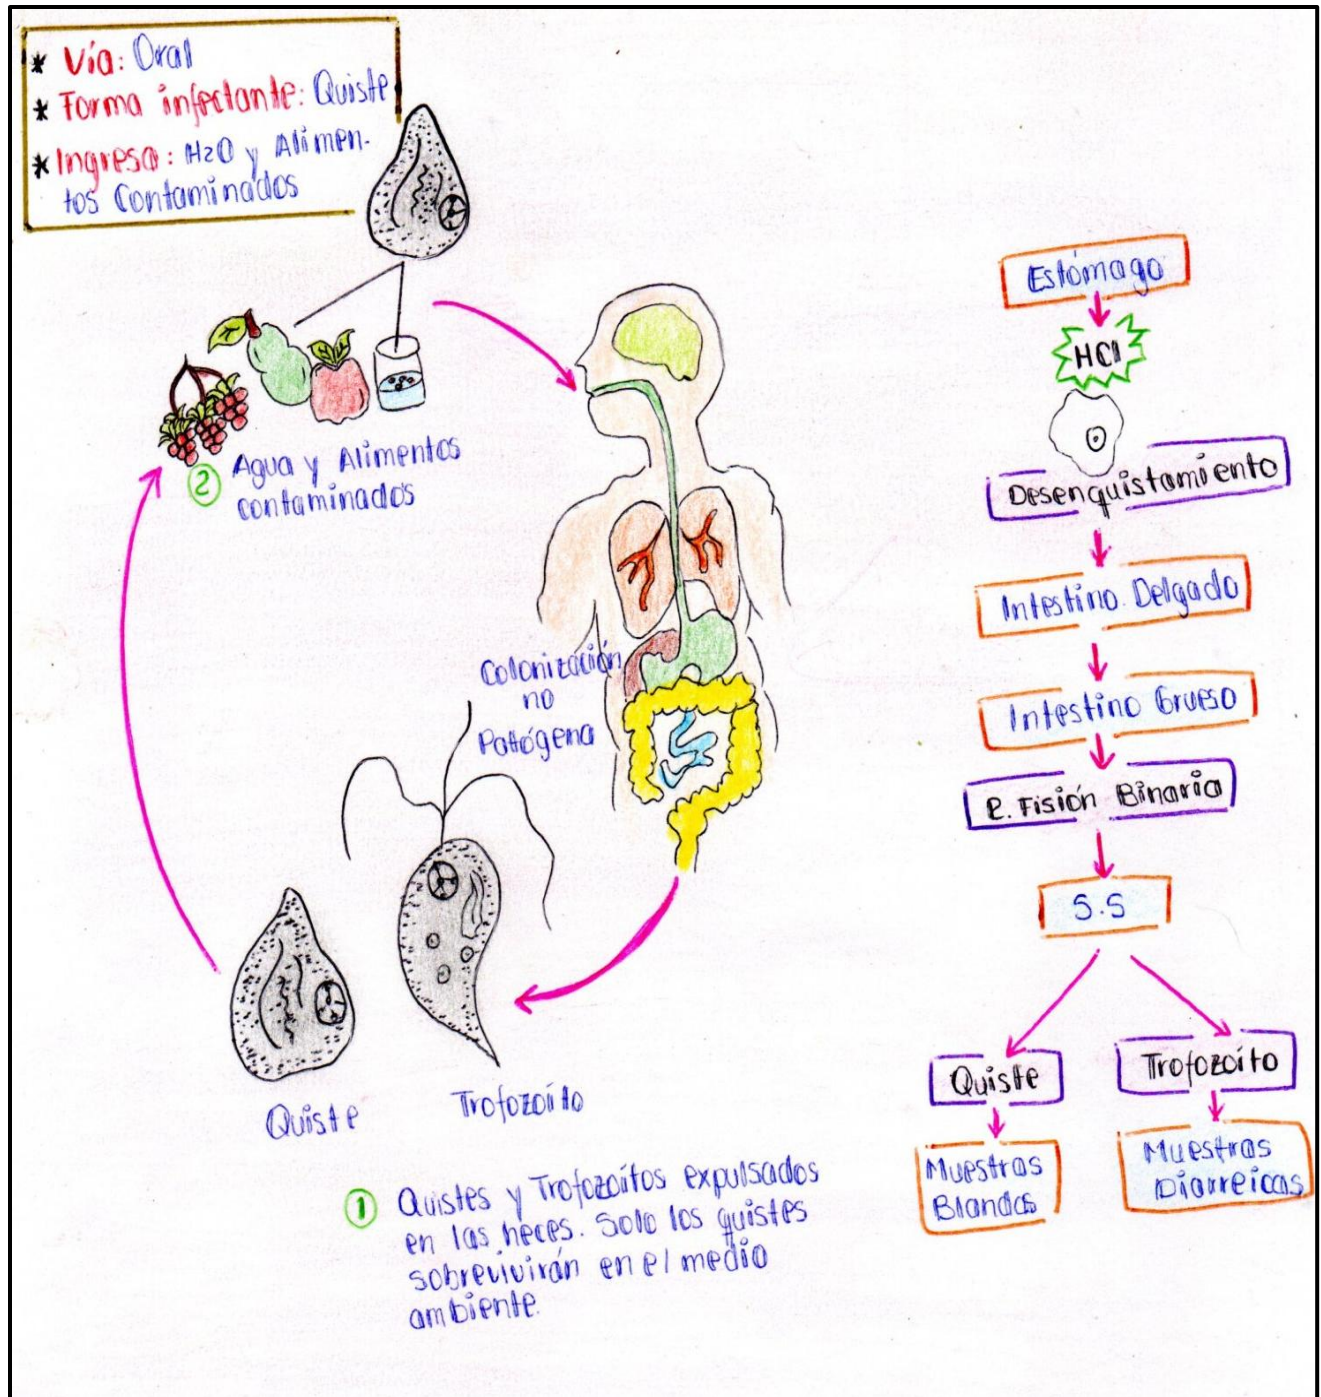 * Vía: Oral
* Forma infectante: Quiste
* Ingreso: H2O y Alimen-
tos Contaminados
② Agua y Alimentos
contaminados
Colonización
no
Patógena
Quiste
Trofozoíto
① Quistes y Trofozoítos expulsados
en las heces. Solo los quistes
sobrevivirán en el medio
ambiente.
Estómago
HCl
Desenquistamiento
Intestino Delgado
Intestino Grueso
R. Fisión Binaria
S.S
Quiste
Trofozoíto
Muestras
Blandas
Muestras
Diarreicas